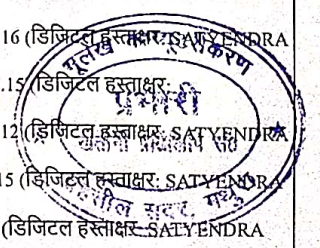 16 (डिजिटल हस्ताक्षर: SATYENDRA
.15 (डिजिटल हस्ताक्षर:
12 (डिजिटल हस्ताक्षर: SATYENDRA
15 (डिजिटल हस्ताक्षर: SATYENDRA
(डिजिटल हस्ताक्षर: SATYENDRA
भूलेख
प्रभारी
सदर